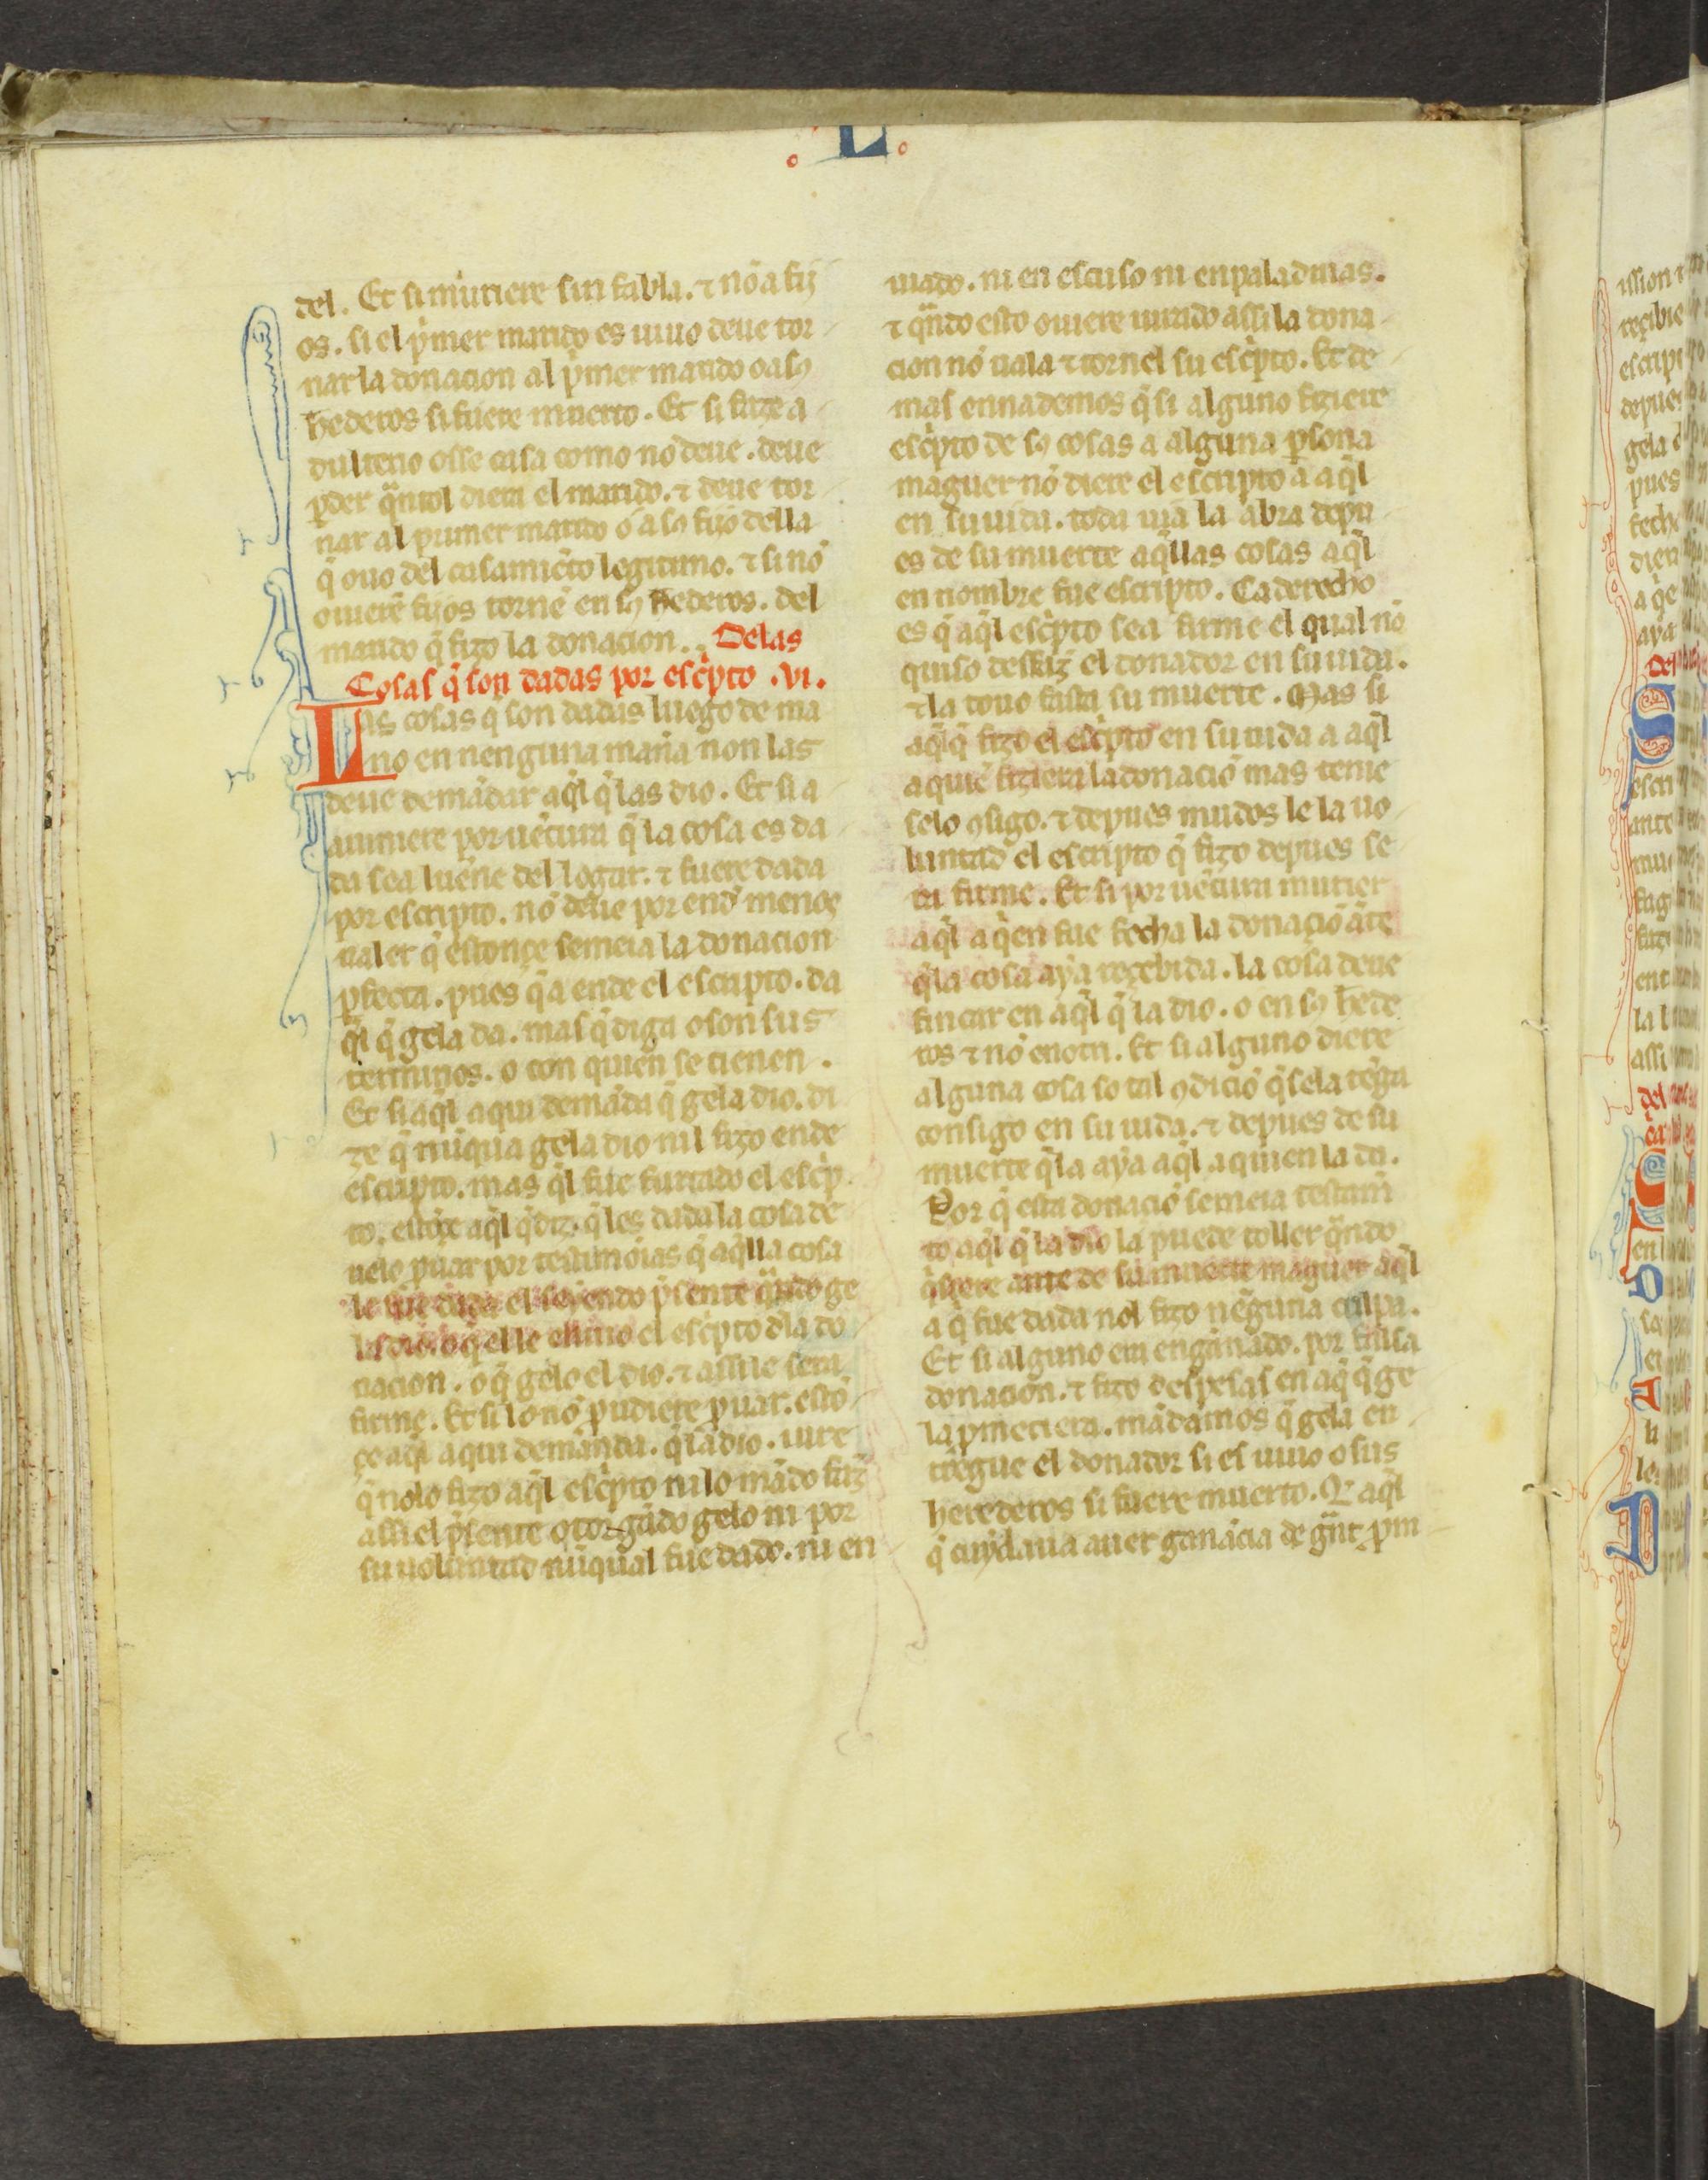 L
del. Et si muriere sin fabla. ⁊ nõ a fij
os. si el p̃mer marido es uiuo deue tor
nar la donacion al p̃mer marido o a sꝯ
hederos si fuere muerto. Et si fizẽ a
dulterio osse casa como nõ deue. deue
ꝑder q̃ntol diera el marido. ⁊ deue tor
nar al primer marido o a lo fijo della
q̃ ouo del casamiẽto legitimo. ⁊ si nõ
ouierẽ fijos tornẽ en sꝯ hederos. del
marido q̃ fizo la donacion. Delas
Cosas q̃ son dadas por esc̃pto .vi.
Las cosas q̃ son dadas luego de ma
no en nenguna maña non las
deue demãdar aq̃l q̃ las dio. Et si a
uiniere por uẽtura q̃ la cosa es da
da sea luẽne del logar. ⁊ fuere dada
por escripto. nõ deue por end̃ menos
ualer q̃ estonçe semeia la donacion
ꝑfecta. pues q̃ a ende el escripto. da
q̃l q̃ gela da. mas q̃ diga o son sus
terminos. o con quien se tienen.
Et si aq̃l aqui demãda q̃ gela dio. di
ze q̃ nũqua gela dio nil fizo ende
escripto. mas q̃l fue furtado el esc̃p
to. estõze aq̃l q̃ diz. q̃l es dada la cosa de
uelo ꝓuar por testimoias q̃ aq̃lla cosa
le fue dada el seyendo p̃sente q̃ndo ge
la dio. o q̃l le enuio el esc̃pto dla do
nacion. o q̃ gelo el dio. ⁊ assi le sera
firme. Et si lo nõ pudiere ꝓuar. estõ
çe aq̃l aqui demanda. q̃ la dio. iure
q̃ nolo fizo aq̃l esc̃pto ni lo mãdo faz̃
assi el p̃sente otorgãdo gelo ni por
su uoluntad nũqual fue dado. ni en
uiado. ni en escuso ni en paladinas.
⁊ q̃ndo esto ouiere iurado assi la dona
cion nõ uala ⁊ tornel su esc̃pto. Et de
mas ennademos q̃ si alguno fiziere
esc̃pto de sꝯ cosas a alguna ꝑsona
maguer nõ diere el escripto a aq̃l
en su uida. toda uia la abra depu
es de su muerte aq̃llas cosas aq̃l
en nombre fue escripto. Ca derecho
es q̃ aq̃l esc̃pto sea firme el qual nõ
quiso desfaz̃ el donador en su uida.
⁊ la touo fasta su muerte. Mas si
aq̃l q̃ fizo el esc̃pto en su uida a aq̃l
a quiẽ fiziera la donaciõ mas touie
selo ꝯsigo. ⁊ depues mudos le la uo
luntad el escripto q̃ fizo depues se
ra firme. Et si por uẽtura murier
aq̃l a q̃en fue fecha la donaçiõ ãte
q̃ la cosa aya reçebida. la cosa deue
fincar en aq̃l q̃ la dio. o en sꝯ hede
ros ⁊ nõ en otri. Et si alguno diere
alguna cosa so tal ꝯdiciõ q̃ se la tẽga
consigo en su uida. ⁊ depues de su
muerte q̃ la aya aq̃l a quien la da.
Por q̃ esta donaciõ semeia testam̃
to aq̃l q̃ la dio la puede toller q̃ndo
q̃siere ante de su muerte maguer aq̃l
a q̃ fue dada nol fizo nẽguna culpa.
Et si alguno era engãnado. por falsa
donacion. ⁊ fizo despesas en aq̃ q̃ ge
la ꝓmetiera. mãdamos q̃ gela en
tregue el donador si es uiuo o sus
herederos si fuere muerto. Q̃ aq̃l
q̃ cuydaua auer ganãcia de g̃nt ꝓm